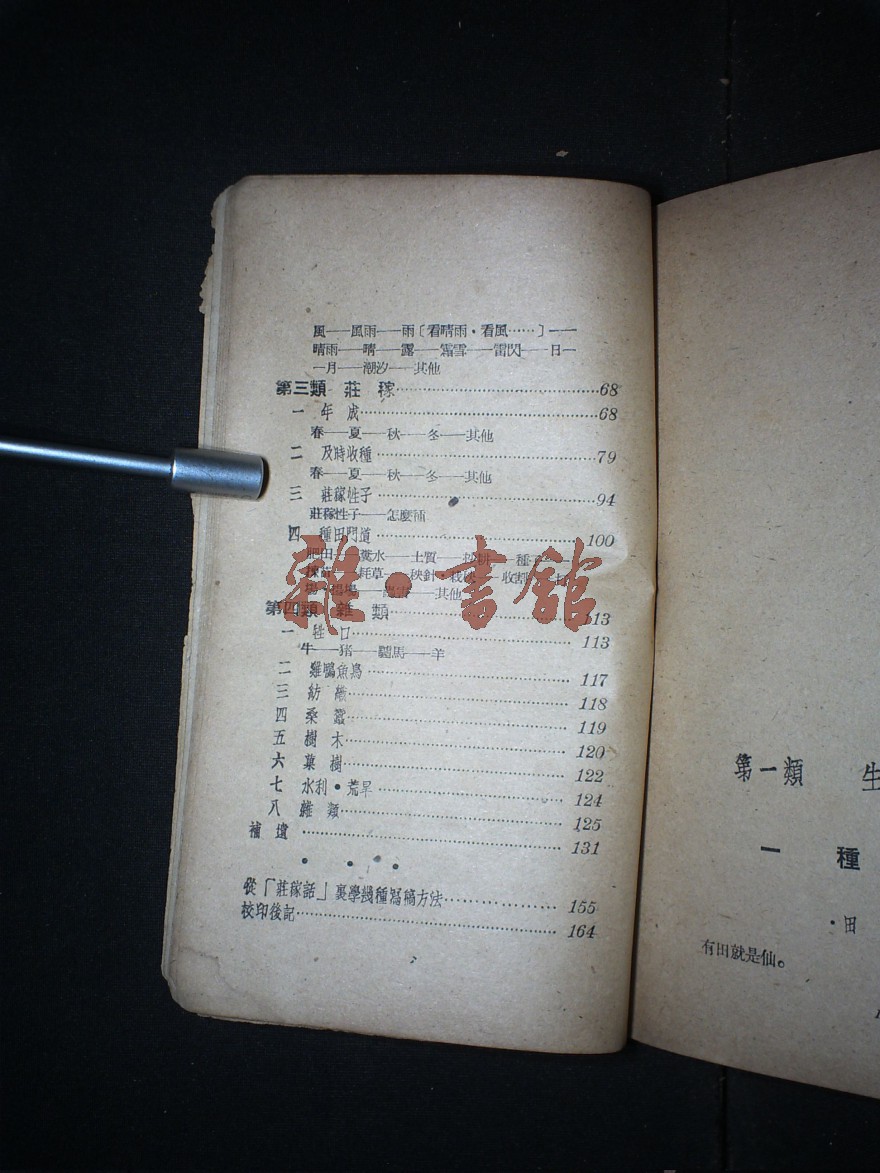 風——風雨——雨〔看晴雨·看風……〕——
晴雨——晴——露——霜雪——雷閃——日—
—月——潮汐——其他
第三類 莊稼……68
一 年成……68
春——夏——秋——冬——其他
二 及時收種……79
春——夏——秋——冬——其他
三 莊稼性子……94
莊稼性子——怎麼種
四 種田門道……100
肥田——糞水——土質——
耗草——秧針·栽秧——收割
其他
雜·書館
第四類 雜類……113
一 牲口……113
牛——猪——驢馬——羊
二 雞鴨魚鳥……117
三 紡織……118
四 桑蠶……119
五 樹木……120
六 菓樹……122
七 水利·荒旱……124
八 雜類……125
補遺……131
從「莊稼話」裏學幾種寫稿方法……155
校印後記……164
第一類 生
一 種
·田
有田就是仙。